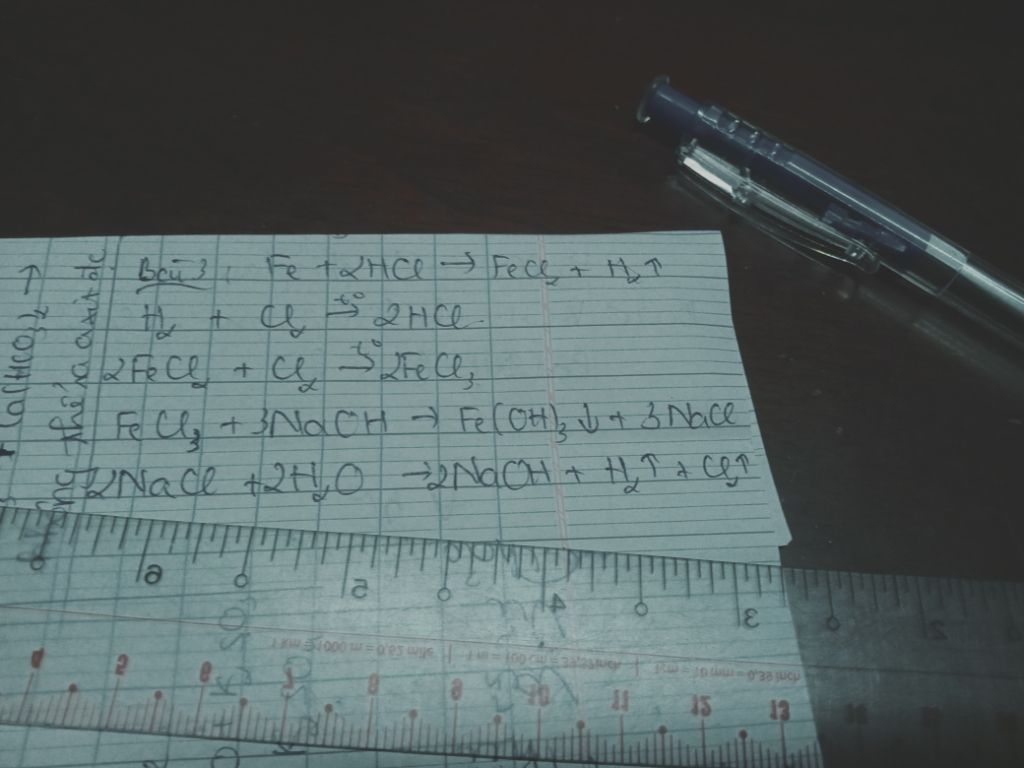 Bài 3: Fe + 2HCl → FeCl₂ + H₂↑
H₂ + Cl₂ →(t°) 2HCl
2FeCl₂ + Cl₂ →(t°) 2FeCl₃
FeCl₃ + 3NaOH → Fe(OH)₃↓ + 3NaCl
2NaCl + 2H₂O → 2NaOH + H₂↑ + Cl₂↑
6 5 4 3 2
1 km = 1000 m = 0.62 mile | 1 m = 100 cm = 39.37 inch | 1 cm = 10 mm = 0.39 inch
4 5 6 7 8 9 10 11 12 13